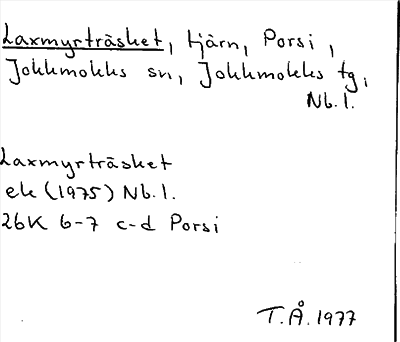 Laxmyrträsket, tjärn, Porsi,
Jokkmokks sn, Jokkmokks tg,
Nb.l.
Laxmyrträsket
ek (1975) Nb.l.
26K 6-7 c-d Porsi
T.Å. 1977